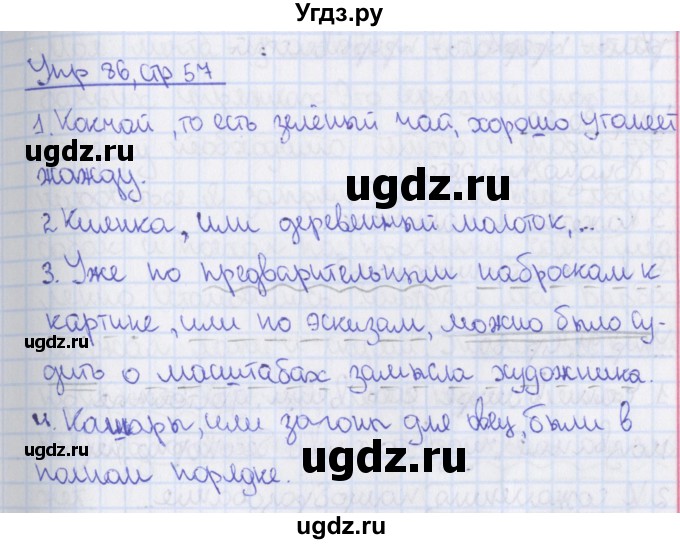 Угдз.ру
Упр 86, стр 57
1. Кокчай, то есть зелёный чай, хорошо утоляет
жажду.
2 Киянка, или деревянный молоток,...
3. Уже по предварительным наброскам к
картине, или по эскизам, можно было су-
дить о масштабах замысла художника.
4. Кашары, или загоны для овец, были в
полном порядке.
ugdz.ru
ugdz.ru
ugdz.ru
ugdz.ru
ugdz.ru
ugdz.ru
ugdz.ru
ugdz.ru